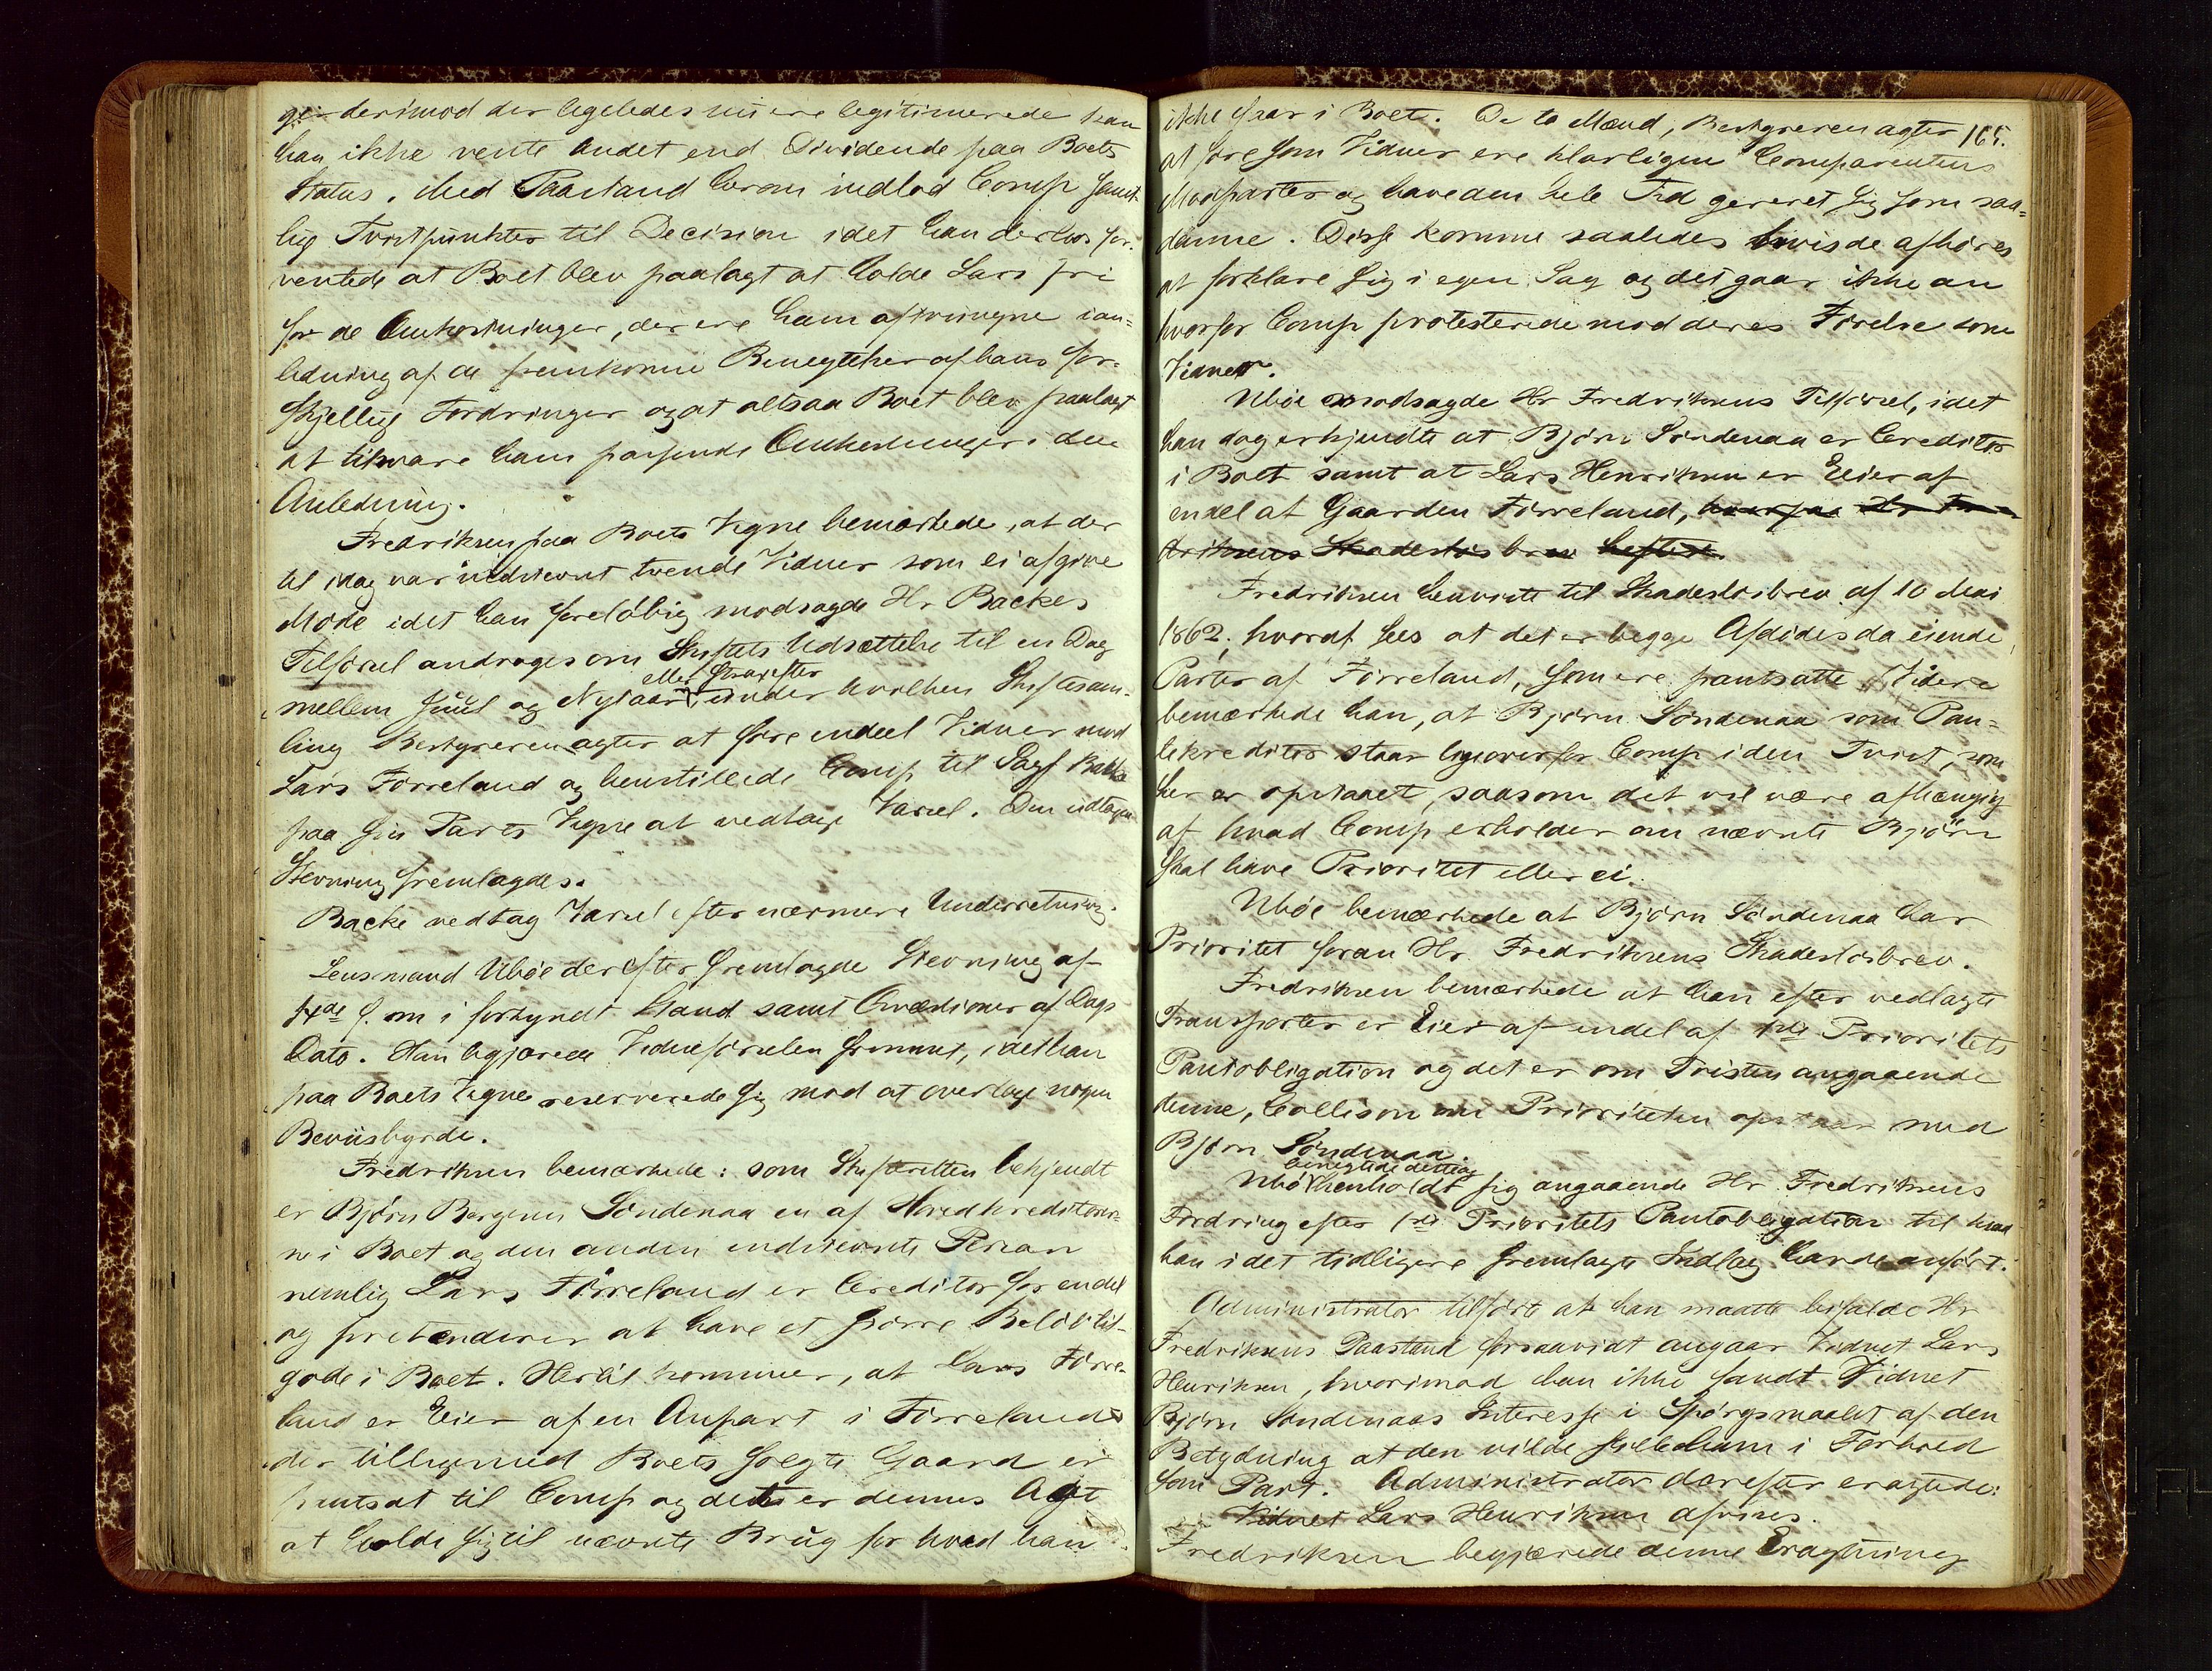 derimod der ligeledes ere legitimerede kan
han ikke vente andet end Dividende paa Boets
Status. Med Paastand herom indlod Comp samt-
lig Tvistpunkter til Decision idet han derhos for-
ventede at Boet blev paalagt at holde Lars fri
for de Omkostninger, der ere ham aftvungne ian-
ledning af de fremkomne Benegtelser af hans for-
skjellige Fordringer og at altsaa Boet blev paalagt
at tilsvare ham passende Omkostninger i den
Anledning.
Fredriksen paa Boets Vegne bemærkede, at der
til idag var indstevnt tvende Vidner som ei afgive
Møde idet han foreløbig modsagde Hr Backes
Tilførsel androges om Skiftets Udsættelse til en Dag
eller strax efter
mellem Juul og Nytaar, under hvilken Skiftesam-
ling Bestyreren agter at føre endeel Vidner mod
Lars Førreland og henstillede Comp til Sagf Backe
paa sin Parts Vegne at vedtage Varsel. Den udtagne
Stevning fremlagdes.
Backe vedtag Varsel efter nærmere Underretning.
Lensmand Ubøe derefter fremlagde Stevning af
14de f. m i forkyndt Stand samt Qvæstioner af Dags
Dato. Han begjærede Vidneførselen fremmet, idet han
paa Boets Vegne reserverede sig mod at overtage nogen
Beviisbyrde.
Fredriksen bemærkede: som Skifteretten bekjendt
er Bjørn Bergesen Søndenaa en af Hovedkreditorer-
ne i Boet og den anden indstevnte Person
nemlig Lars Førreland er Creditor for en del
og prætenderer at have et større Beløb til-
gode i Boet. Hertil kommer, at Lars Førre-
land er Eier af en Anpart i Førreland
der tilligemed Boets solgte Gaard er
pantsat til Comp og det er dennes Agt
at holde sig til nævnte Brug for hvad han
165.
ikke faar i Boet. De to Mænd, Bestyreren agter
at føre som Vidner ere klarligen Comparentens
Modparter og have den hele Tid gereret sig som saa-
danne. Disse komme saaledes hvis de afhøres
at forklare sig i egen Sag og det gaar ikke an
hvorfor Comp protesterede mod deres Førelse som
Vidner.
Ubøe modsagde Hr Fredriksens Tilførsel, idet
han dog erkjendte at Bjørn Søndenaa er Creditor
i Boet samt at Lars Henriksen er Eier af
en del af Gaarden Førreland, hvorpaa Hr Fre-
driksens Skadesløsbrev hefter.
Fredriksen henviste til Skadesløsbrev af 10 Mai
1862, hvoraf sees at det er begge Afdødes da eiende
Parter af Førreland, som ere pantsatte. Videre
bemærkede han, at Bjørn Søndenaa som Pan-
tekreditor staar ligeoverfor Comp i den Tvist, som
her er opstaaet, saasom det vil være afhængig
af hvad Comp erholder om nævnte Bjørn
skal have Prioritet eller ei.
Ubøe bemærkede at Bjørn Søndenaa har
Prioritet foran Hr. Fredriksens Skadesløsbrev.
Fredriksen bemærkede at han efter vedlagte
Transporter er Eier af en del af 1ste Prioritets
Pantobligation og det er om Tvisten angaaende
denne, Collison om Prioriteten opstaar med
Bjørn Søndenaa.
benegtede dette og
Ubøe henholdt sig angaaende Hr. Fredriksens
Fordring efter 1ste Prioritets Pantobligation til hvad
han i det tidligere fremlagte Indlæg havde anført.
Administrator tilførte at han maatte bifalde Hr
Fredriksens Paastand forsaavidt angaar Vidnet Lars
Henriksen, hvorimod han ikke fandt Vidnet
Bjørn Søndenaas Interesse i Spørgsmaalet af den
Betydning at den vilde stille ham i Forhold
som Part. Administrator derefter eragtede:
Vidnet Lars Henriksen afvises.
Fredriksen begjærede denne Eragtning